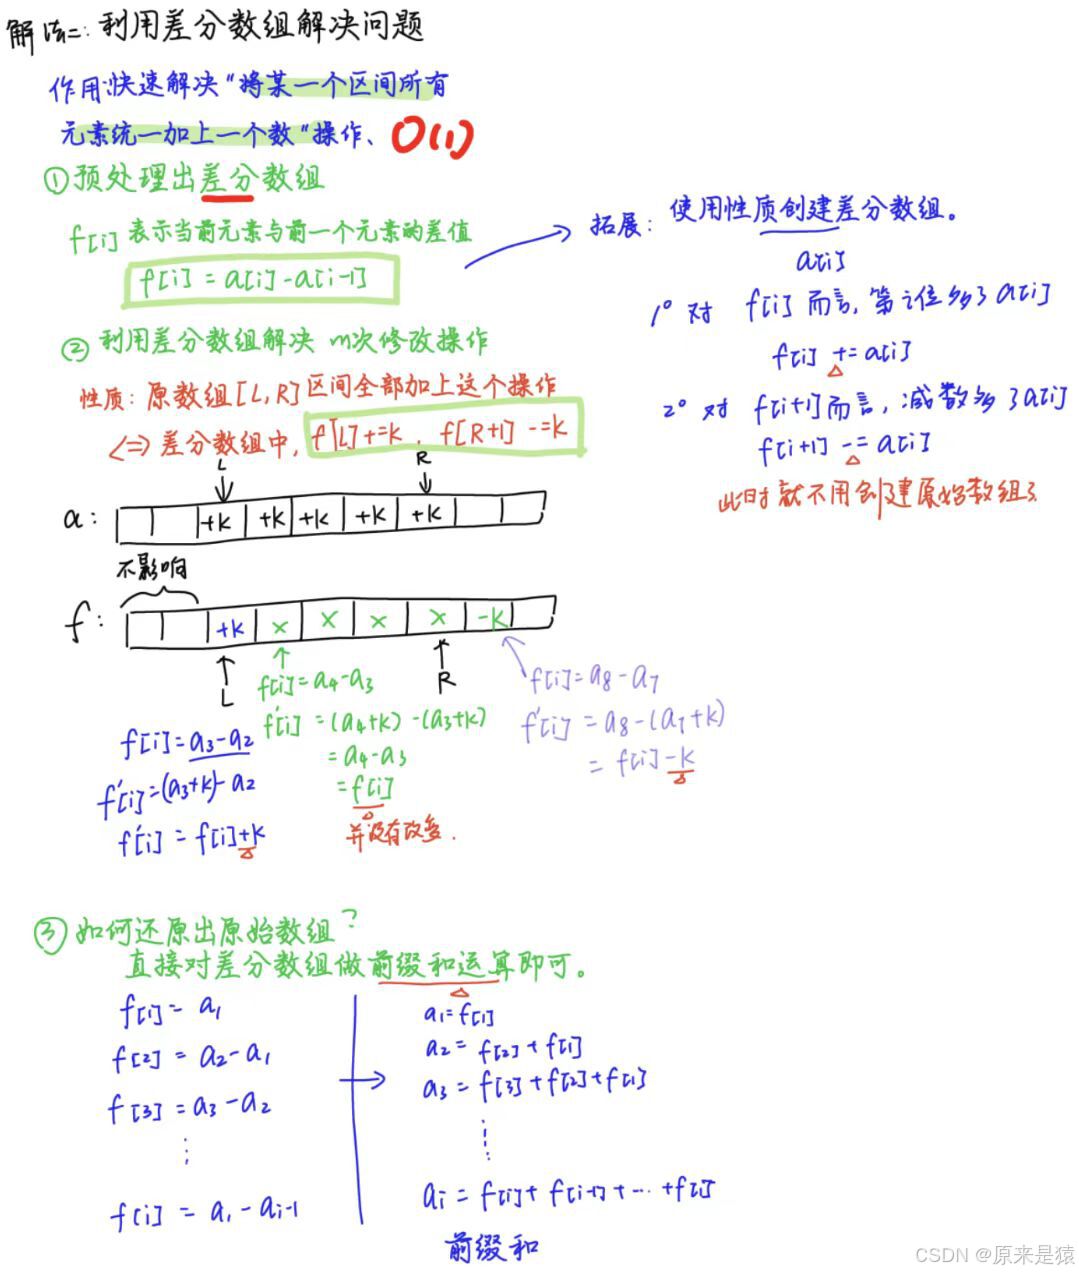 解法二:利用差分数组解决问题
作用:快速解决"将某一个区间所有
元素统一加上一个数"操作、O(1)
①预处理出差分数组
f[i]表示当前元素与前一个元素的差值
f[i] = a[i]-a[i-1]
拓展:使用性质创建差分数组。
a[i]
1° 对 f[i]而言,第i位多了a[i]
f[i] += a[i]
2° 对 f[i+1]而言,减数多了a[i]
f[i+1] -= a[i]
此时就不用创建原始数组了
② 利用差分数组解决 m次修改操作
性质:原数组[L,R]区间全部加上这个操作
<=> 差分数组中, f[L]+=k, f[R+1] -=k
L R
a: +k +k +k +k +k
不影响
f: +k x x x x -k
L R
f[i]=a3-a2
f'[i]=(a3+k)-a2
f'[i] = f[i]+k
f[i]=a4-a3
f'[i] =(a4+k)-(a3+k)
=a4-a3
=f[i]
并没有改变.
f[i]=a8-a7
f'[i] = a8-(a7+k)
= f[i]-k
③如何还原出原始数组?
直接对差分数组做前缀和运算即可。
f[1]= a1
f[2] = a2-a1
f[3] =a3-a2
⋮
f[i] = ai-ai-1
a1=f[1]
a2= f[2]+f[1]
a3 = f[3]+f[2]+f[1]
⋮
ai = f[i]+ f[i-1]+ ... +f[1]
前缀和
CSDN @原来是猿